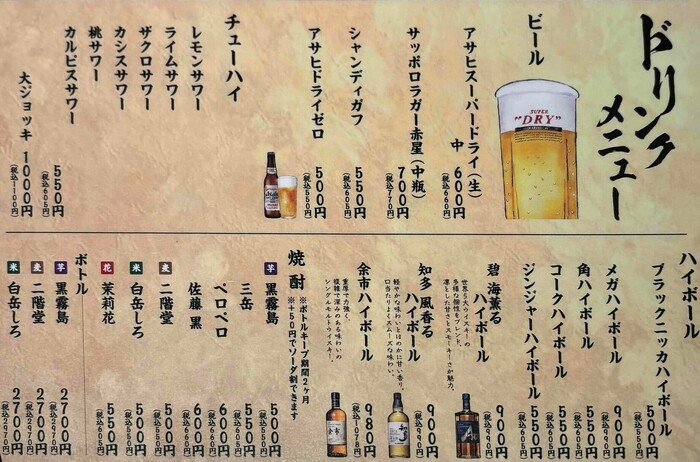 ドリンク
メニュー
ビール
SUPER
"DRY"
アサヒスーパードライ(生)
中 600円
(税込660円)
サッポロラガー赤星(中瓶)
700円
(税込770円)
シャンディガフ
550円
(税込605円)
アサヒドライゼロ
500円
(税込550円)
チューハイ
レモンサワー
ライムサワー
ザクロサワー
カシスサワー
桃サワー
カルピスサワー
550円
(税込605円)
大ジョッキ 1000円
(税込1100円)
ハイボール
ブラックニッカハイボール
500円
(税込550円)
メガハイボール
900円
(税込990円)
角ハイボール
550円
(税込605円)
コークハイボール
550円
(税込605円)
ジンジャーハイボール
550円
(税込605円)
碧 海薫る
ハイボール
世界5大ウイスキーの
多様な個性をブレンド。
凛とした甘さとスモーキーさが魅力。
900円
(税込990円)
知多 風香る
ハイボール
軽やかな味わいとほのかに甘い香り。
口当たりよくスムーズな味わい。
900円
(税込990円)
余市ハイボール
重厚で力強く、
複雑で深みのある味わいの
シングルモルトウイスキー。
980円
(税込1078円)
焼酎
※ボトルキープ期間2ヶ月
※+50円でソーダ割できます
芋 黒霧島
500円
(税込550円)
三岳
550円
(税込605円)
ペロペロ
600円
(税込660円)
佐藤 黒
600円
(税込660円)
麦 二階堂
500円
(税込550円)
米 白岳しろ
550円
(税込605円)
花 茉莉花
550円
(税込605円)
ボトル
芋 黒霧島
2700円
(税込2970円)
麦 二階堂
2700円
(税込2970円)
米 白岳しろ
2700円
(税込2970円)